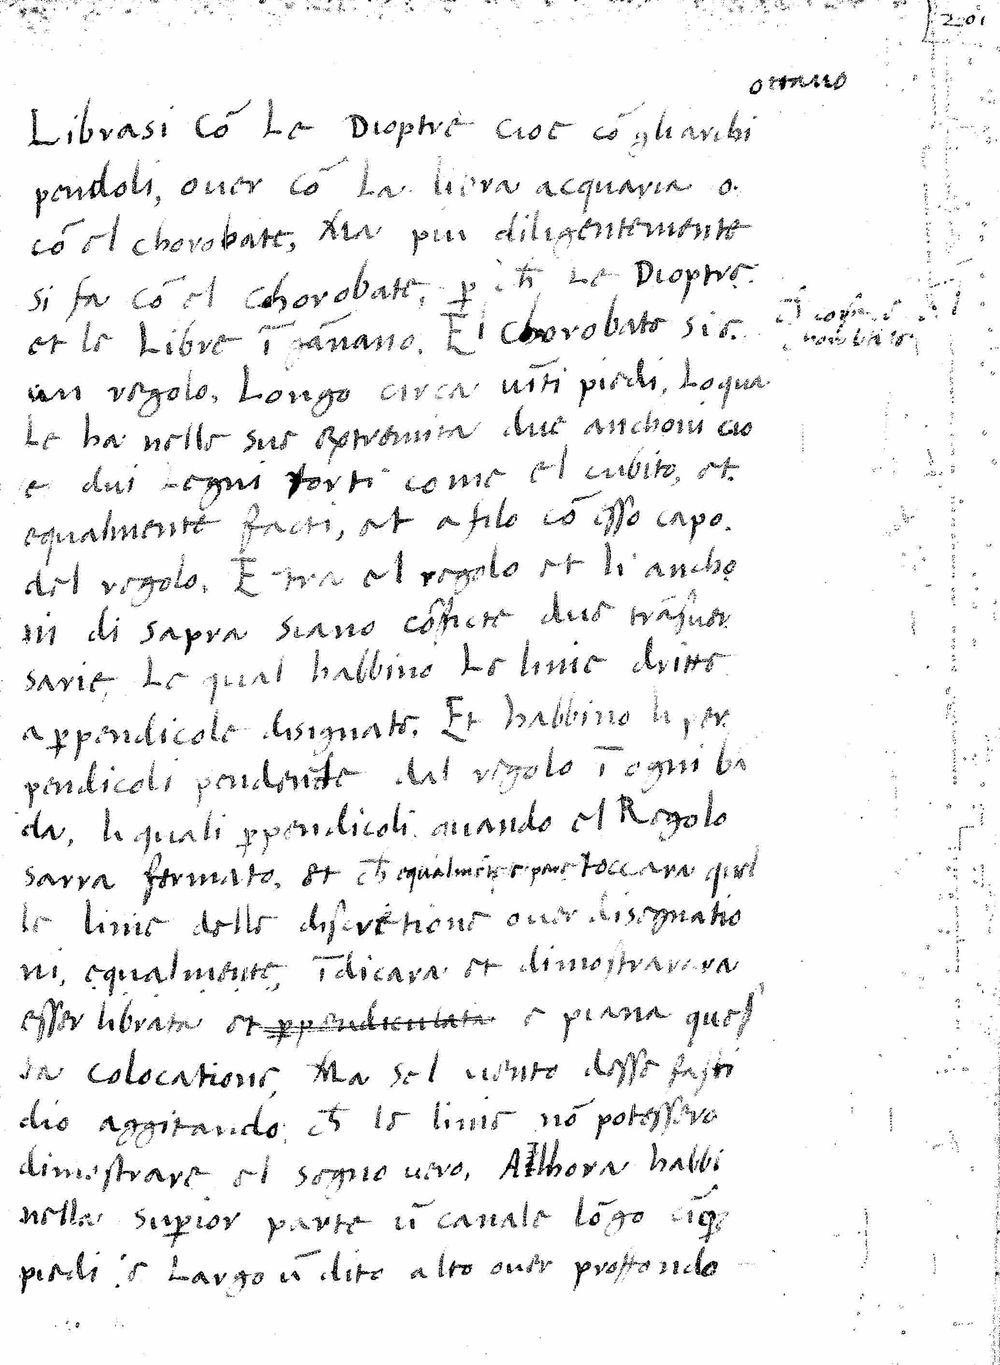 201
ottauo
Librasi cō Le Dioptre cioe cō gliarchi
pendoli, ouer cō La libra acquaria o.
cō el chorobate, Ma piu diligentemente
si fa cō el chorobate, ꝑ ch̄ Le Dioptre.
et le Libre īgānano. El chorobate sie.
un regolo, Longo circa uīti piedi, Loqua
Le ha nelle sue extremita due anchoni cio
e dui Legni torti come el cubito, et
equalmente facti, et a filo cō esso capo.
del regolo. E tra el regolo et li ancho
ni di sapra siano cōficte due trāsuer
sarie, Le qual habbino Le linie dritte
a ꝑpendicole disignate. Et habbino li per
pendicoli pendente dal regolo ī ogni ba
da, li quali ꝑpendicoli quando el Regolo
sarra fermato, et ch̄ equalmēte e pare toccara quel
le linie delle discretione ouer disegnatio
ni, equalmente, īdicara et dimostrarara
esser librata et ꝑpendiculata e piana quest
ta colocatione, Ma sel uento desse fasti
dio aggitando, ch̄ le linie nō potessero
dimostrare el segno uero, Allhora habbi
nella suꝑior parte ū canale lōgo cīq
piedi e Largo ū dito alto ouer proffondo